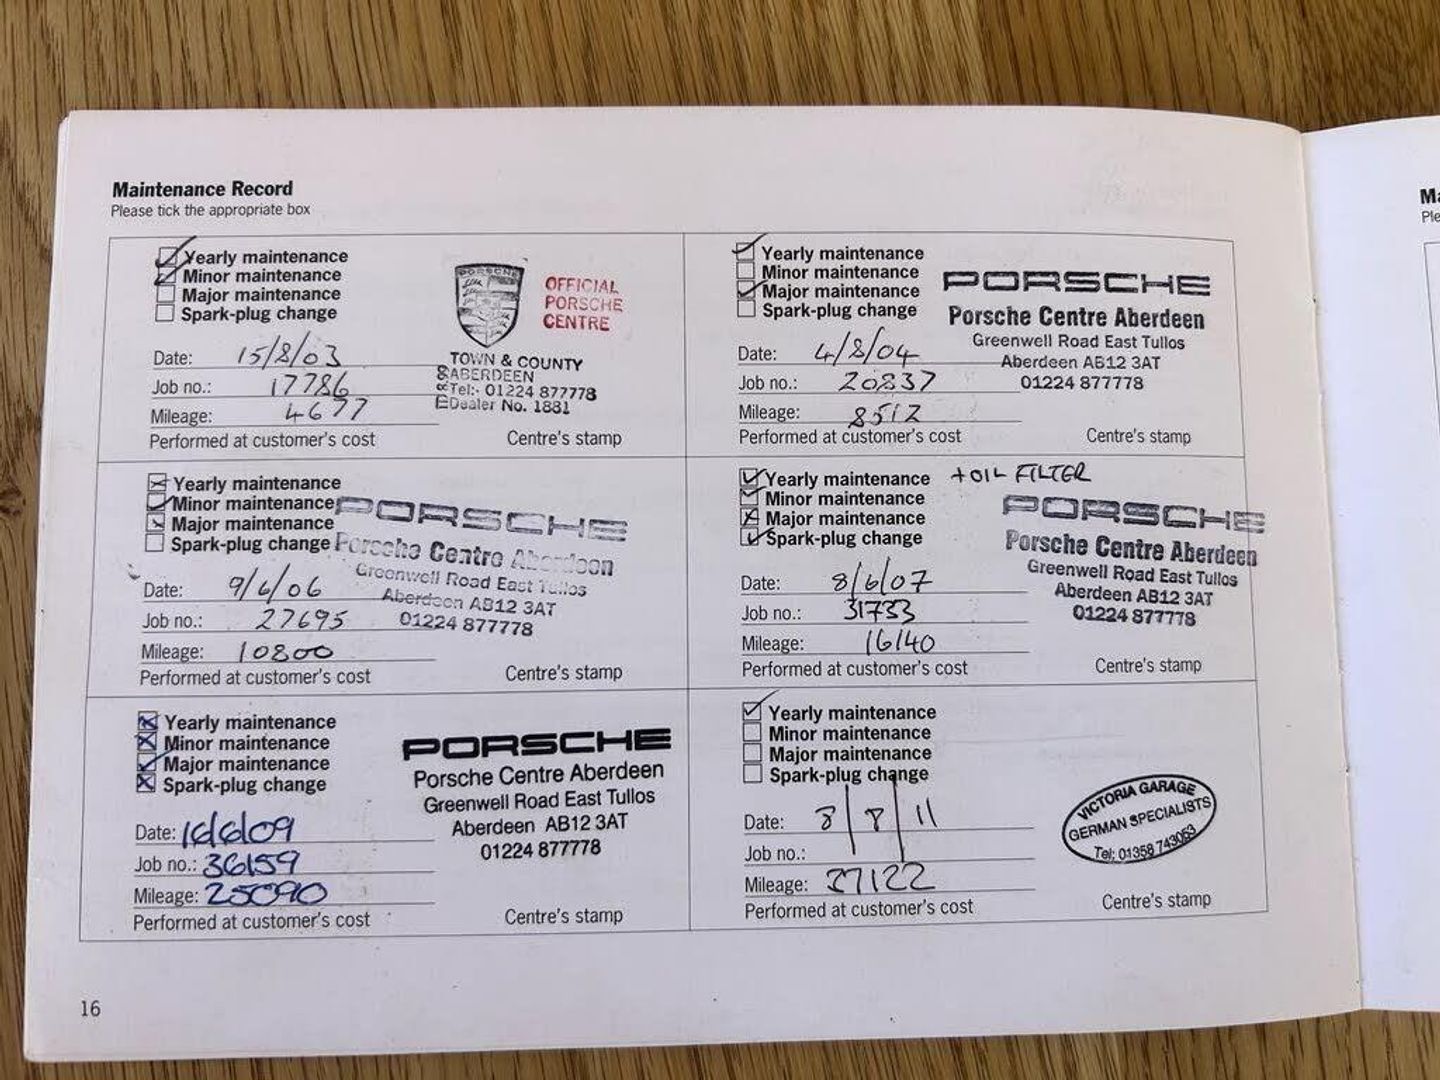 Maintenance Record
Please tick the appropriate box
Yearly maintenance
Minor maintenance
Major maintenance
Spark-plug change
Date: 15/8/03
Job no.: 17786
Mileage: 4677
Performed at customer's cost
PORSCHE
OFFICIAL
PORSCHE
CENTRE
TOWN & COUNTY
ABERDEEN
Tel:- 01224 877778
Dealer No. 1881
Centre's stamp
Yearly maintenance
Minor maintenance
Major maintenance
Spark-plug change
Date: 4/8/04
Job no.: 20837
Mileage: 8512
Performed at customer's cost
PORSCHE
Porsche Centre Aberdeen
Greenwell Road East Tullos
Aberdeen AB12 3AT
01224 877778
Centre's stamp
Yearly maintenance
Minor maintenance
Major maintenance
Spark-plug change
Date: 9/6/06
Job no.: 27695
Mileage: 10800
Performed at customer's cost
PORSCHE
Porsche Centre Aberdeen
Greenwell Road East Tullos
Aberdeen AB12 3AT
01224 877778
Centre's stamp
Yearly maintenance + OIL FILTER
Minor maintenance
Major maintenance
Spark-plug change
Date: 8/6/07
Job no.: 31733
Mileage: 16140
Performed at customer's cost
PORSCHE
Porsche Centre Aberdeen
Greenwell Road East Tullos
Aberdeen AB12 3AT
01224 877778
Centre's stamp
Yearly maintenance
Minor maintenance
Major maintenance
Spark-plug change
Date: 16/6/09
Job no.: 36159
Mileage: 25090
Performed at customer's cost
PORSCHE
Porsche Centre Aberdeen
Greenwell Road East Tullos
Aberdeen AB12 3AT
01224 877778
Centre's stamp
Yearly maintenance
Minor maintenance
Major maintenance
Spark-plug change
Date: 8/8/11
Job no.:
Mileage: 27122
Performed at customer's cost
VICTORIA GARAGE
GERMAN SPECIALISTS
Tel: 01358 743053
Centre's stamp
16